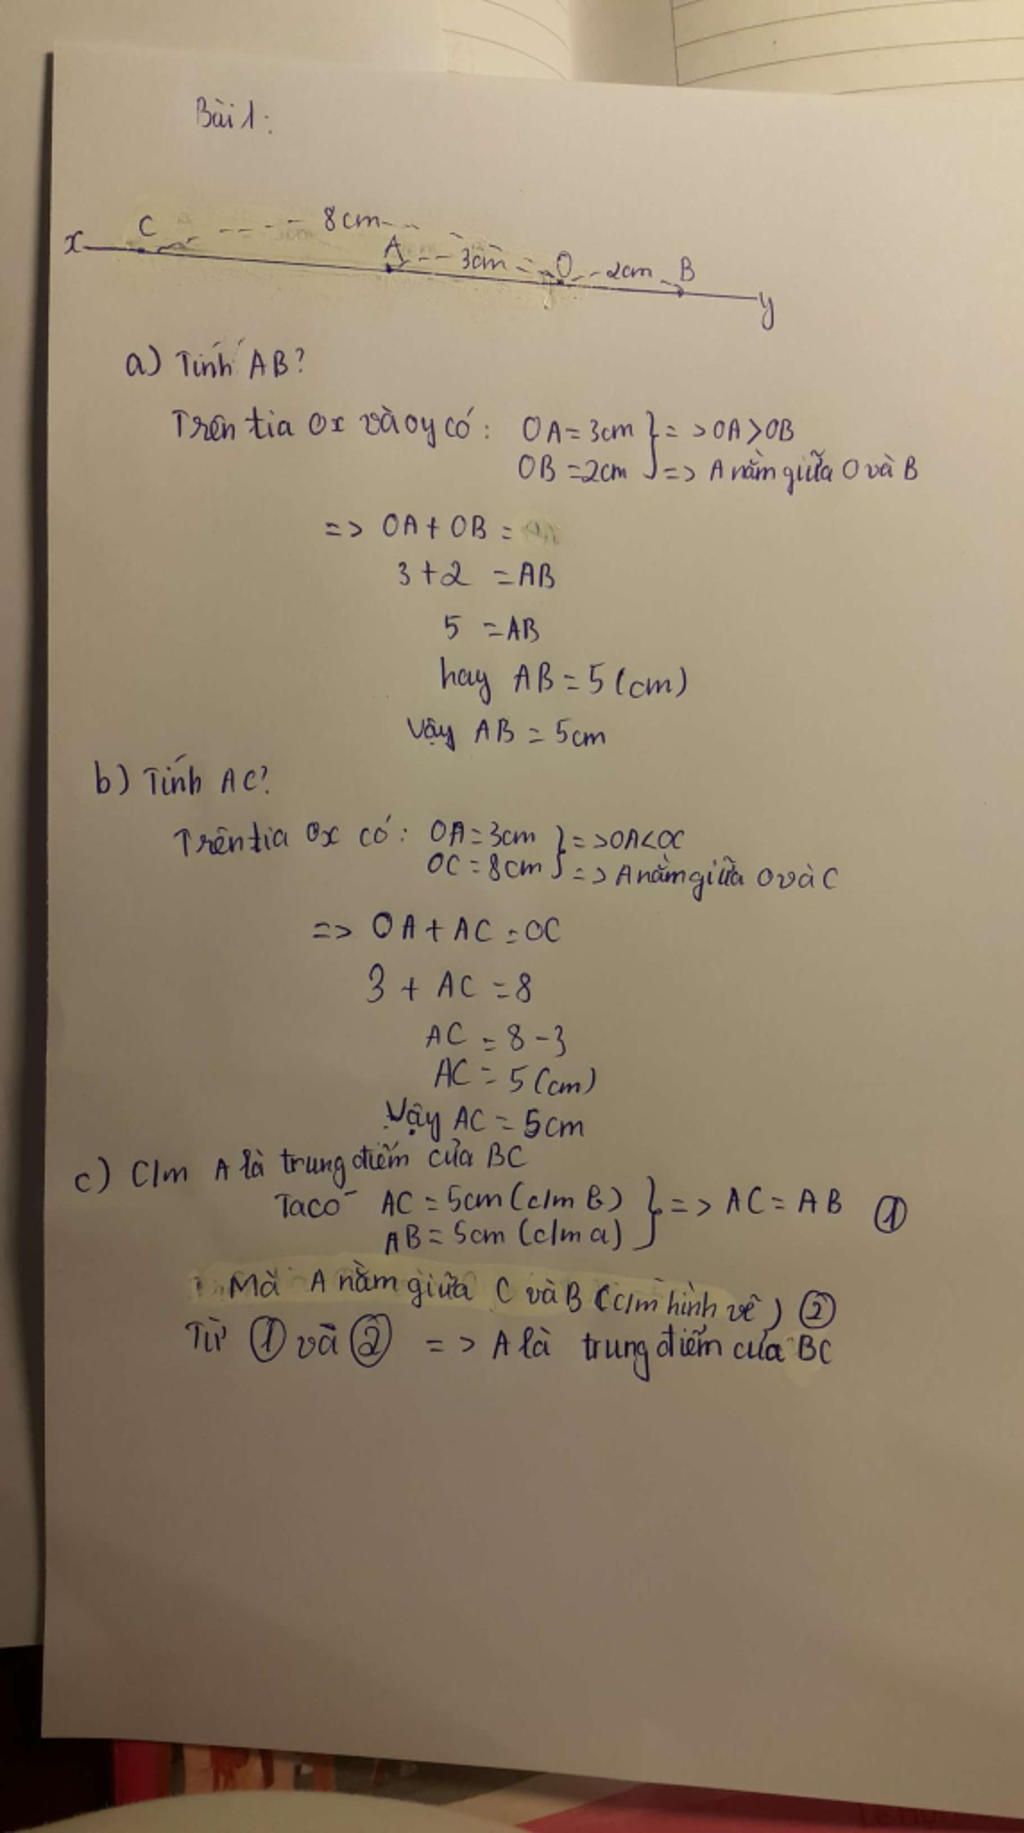 Bài 1:
8cm
x C A 3cm O 2cm B y
a) Tính AB?
Trên tia Ox và Oy có: OA = 3cm } => OA > OB
OB = 2cm } => A nằm giữa O và B
=> OA + OB =
3 + 2 = AB
5 = AB
hay AB = 5 (cm)
Vậy AB = 5cm
b) Tính AC?
Trên tia Ox có: OA = 3cm } => OA < OC
OC = 8cm } => A nằm giữa O và C
=> OA + AC = OC
3 + AC = 8
AC = 8 - 3
AC = 5 (cm)
Vậy AC = 5cm
c) C/m A là trung điểm của BC
Ta có AC = 5cm (c/m b) } => AC = AB ①
AB = 5cm (c/m a) }
Mà A nằm giữa C và B (c/m hình vẽ) ②
Từ ① và ② => A là trung điểm của BC